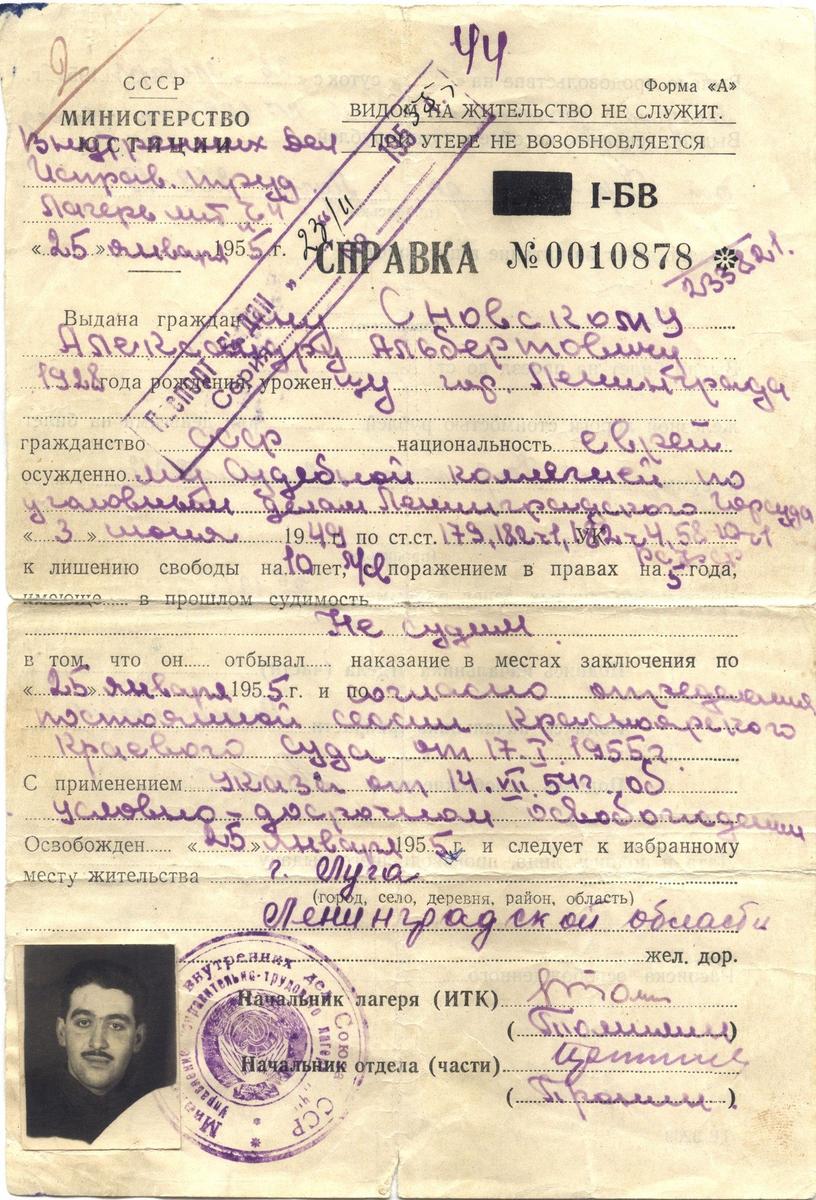 44
2
СССР
Форма «А»
МИНИСТЕРСТВО
ЮСТИЦИИ
Внутренних дел
ВИДОМ НА ЖИТЕЛЬСТВО НЕ СЛУЖИТ.
ПРИ УТЕРЕ НЕ ВОЗОБНОВЛЯЕТСЯ
Исправ. труд.
Лагерь
I-БВ
«25» января 1955 г.
СПРАВКА №0010878
ПАСПОРТ ВЫДАН
Серия
23/II
Выдана гражданину Сновскому
Александру Альбертовичу
1928 года рождения, уроженцу гор Ленинграда
гражданство СССР национальность еврей
осужденному Судебной коллегией по
уголовным делам Ленинградского Горсуда
«3» июня 1949 г. по ст.ст. 179, 182 ч 1, 182 ч 4, 58-10 ч 1 УК
РСФСР
к лишению свободы на 10 лет, с поражением в правах на 5 года,
имеюще в прошлом судимость
Не судим
в том, что он отбывал наказание в местах заключения по
«25» января 1955 г. и по согласно определения
постоянной сессии Красноярского
Краевого Суда от 17.I.1955г
С применением указа от 14.VII.54г. об
условно-досрочном освобождении
Освобожден «25» января 1955 г. и следует к избранному
месту жительства г. Луга
(город, село, деревня, район, область)
Ленинградской области
жел. дор.
Начальник лагеря (ИТК)
Начальник отдела (части)
(Пронин)
внутренних дел Союза ССР